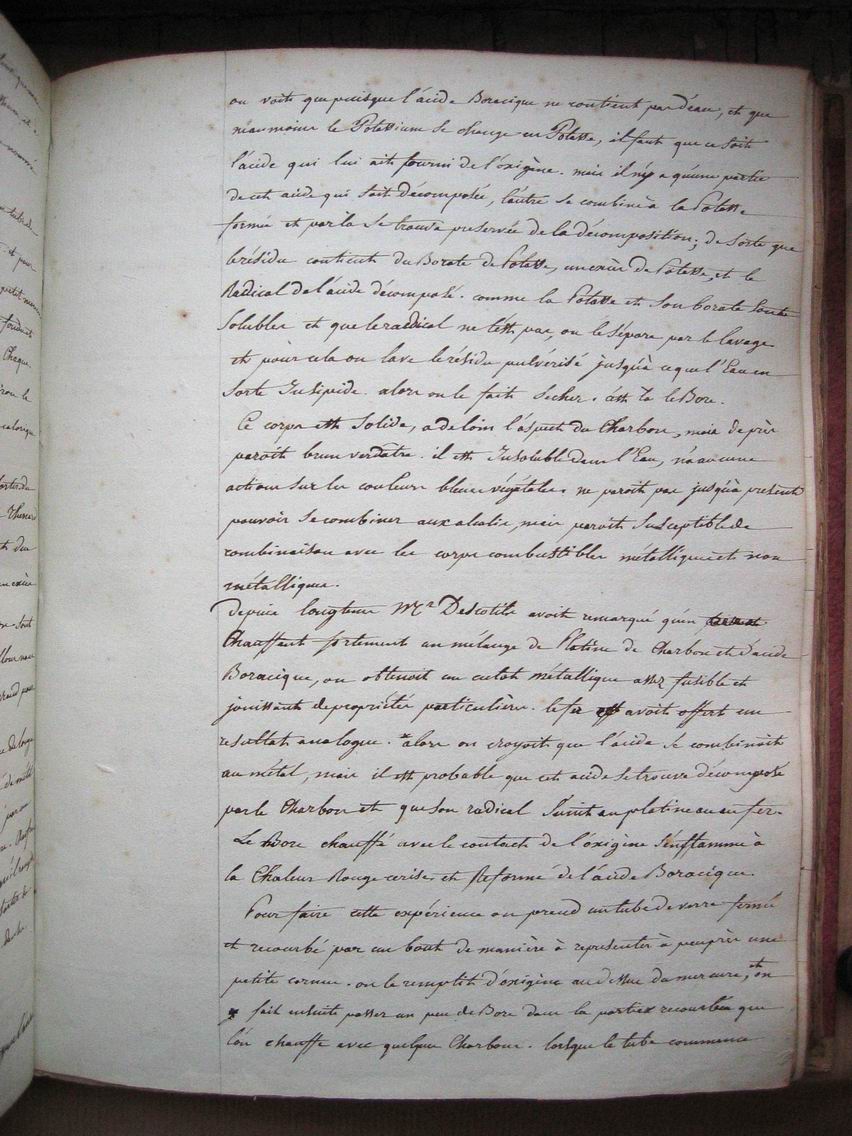 on voit que puisque l'acide Boracique ne contient pas d'eau, et que
néanmoins le Potassium se change en Potasse, il faut que ce soit
l'acide qui lui ait fourni de l'oxigène. mais il n'y a qu'une partie
de cet acide qui soit décomposée, l'autre se combine à la Potasse
formée et par là se trouve preservée de la décomposition; de sorte que
le résidu contient du Borate de Potasse, un excès de Potasse, et le
Radical de l'acide décomposé. comme la Potasse et son borate sont
solubles et que le radical ne l'est pas, on le sépare par le lavage
et pour cela on lave le résidu pulvérisé jusqu'à ce que l'Eau en
sorte Insipide. alors on le fait secher. c'est là le Bore.
Ce corps est solide, a de loin l'aspect du Charbon, mais de près
paroît brun verdatre. il est Insoluble dans l'Eau, n'a aucune
action sur les couleurs bleues végétales. ne paroît pas jusqu'à présent
pouvoir se combiner aux alcalis, mais paroît susceptible de
combinaison avec les corps combustibles métalliques et non
métalliques.
depuis longtems Mr Descotils avoit remarqué qu'en
Chauffant fortement un mélange de Platine de Charbon et d'acide
Boracique, on obtenoit un culot métallique assez fusible et
jouissant de propriétés particulières. le fer avoit offert un
resultat analogue. alors on croyoit que l'acide se combinoit
au métal, mais il est probable que cet acide se trouve décomposé
par le Charbon et que son radical s'unit au platine ou au fer.
Le Bore chauffé avec le contact de l'oxigène s'enflamme à
la Chaleur Rouge cerise et Reforme de l'acide Boracique.
Pour faire cette expérience on prend un tube de verre fermé
et recourbé par un bout de manière à representer à peu près une
petite cornue. on le remplit d'oxigène au dessus du mercure, et on
fait ensuite passer un peu de Bore dans la partie recourbée que
l'on chauffe avec quelques Charbons. lorsque le tube commence